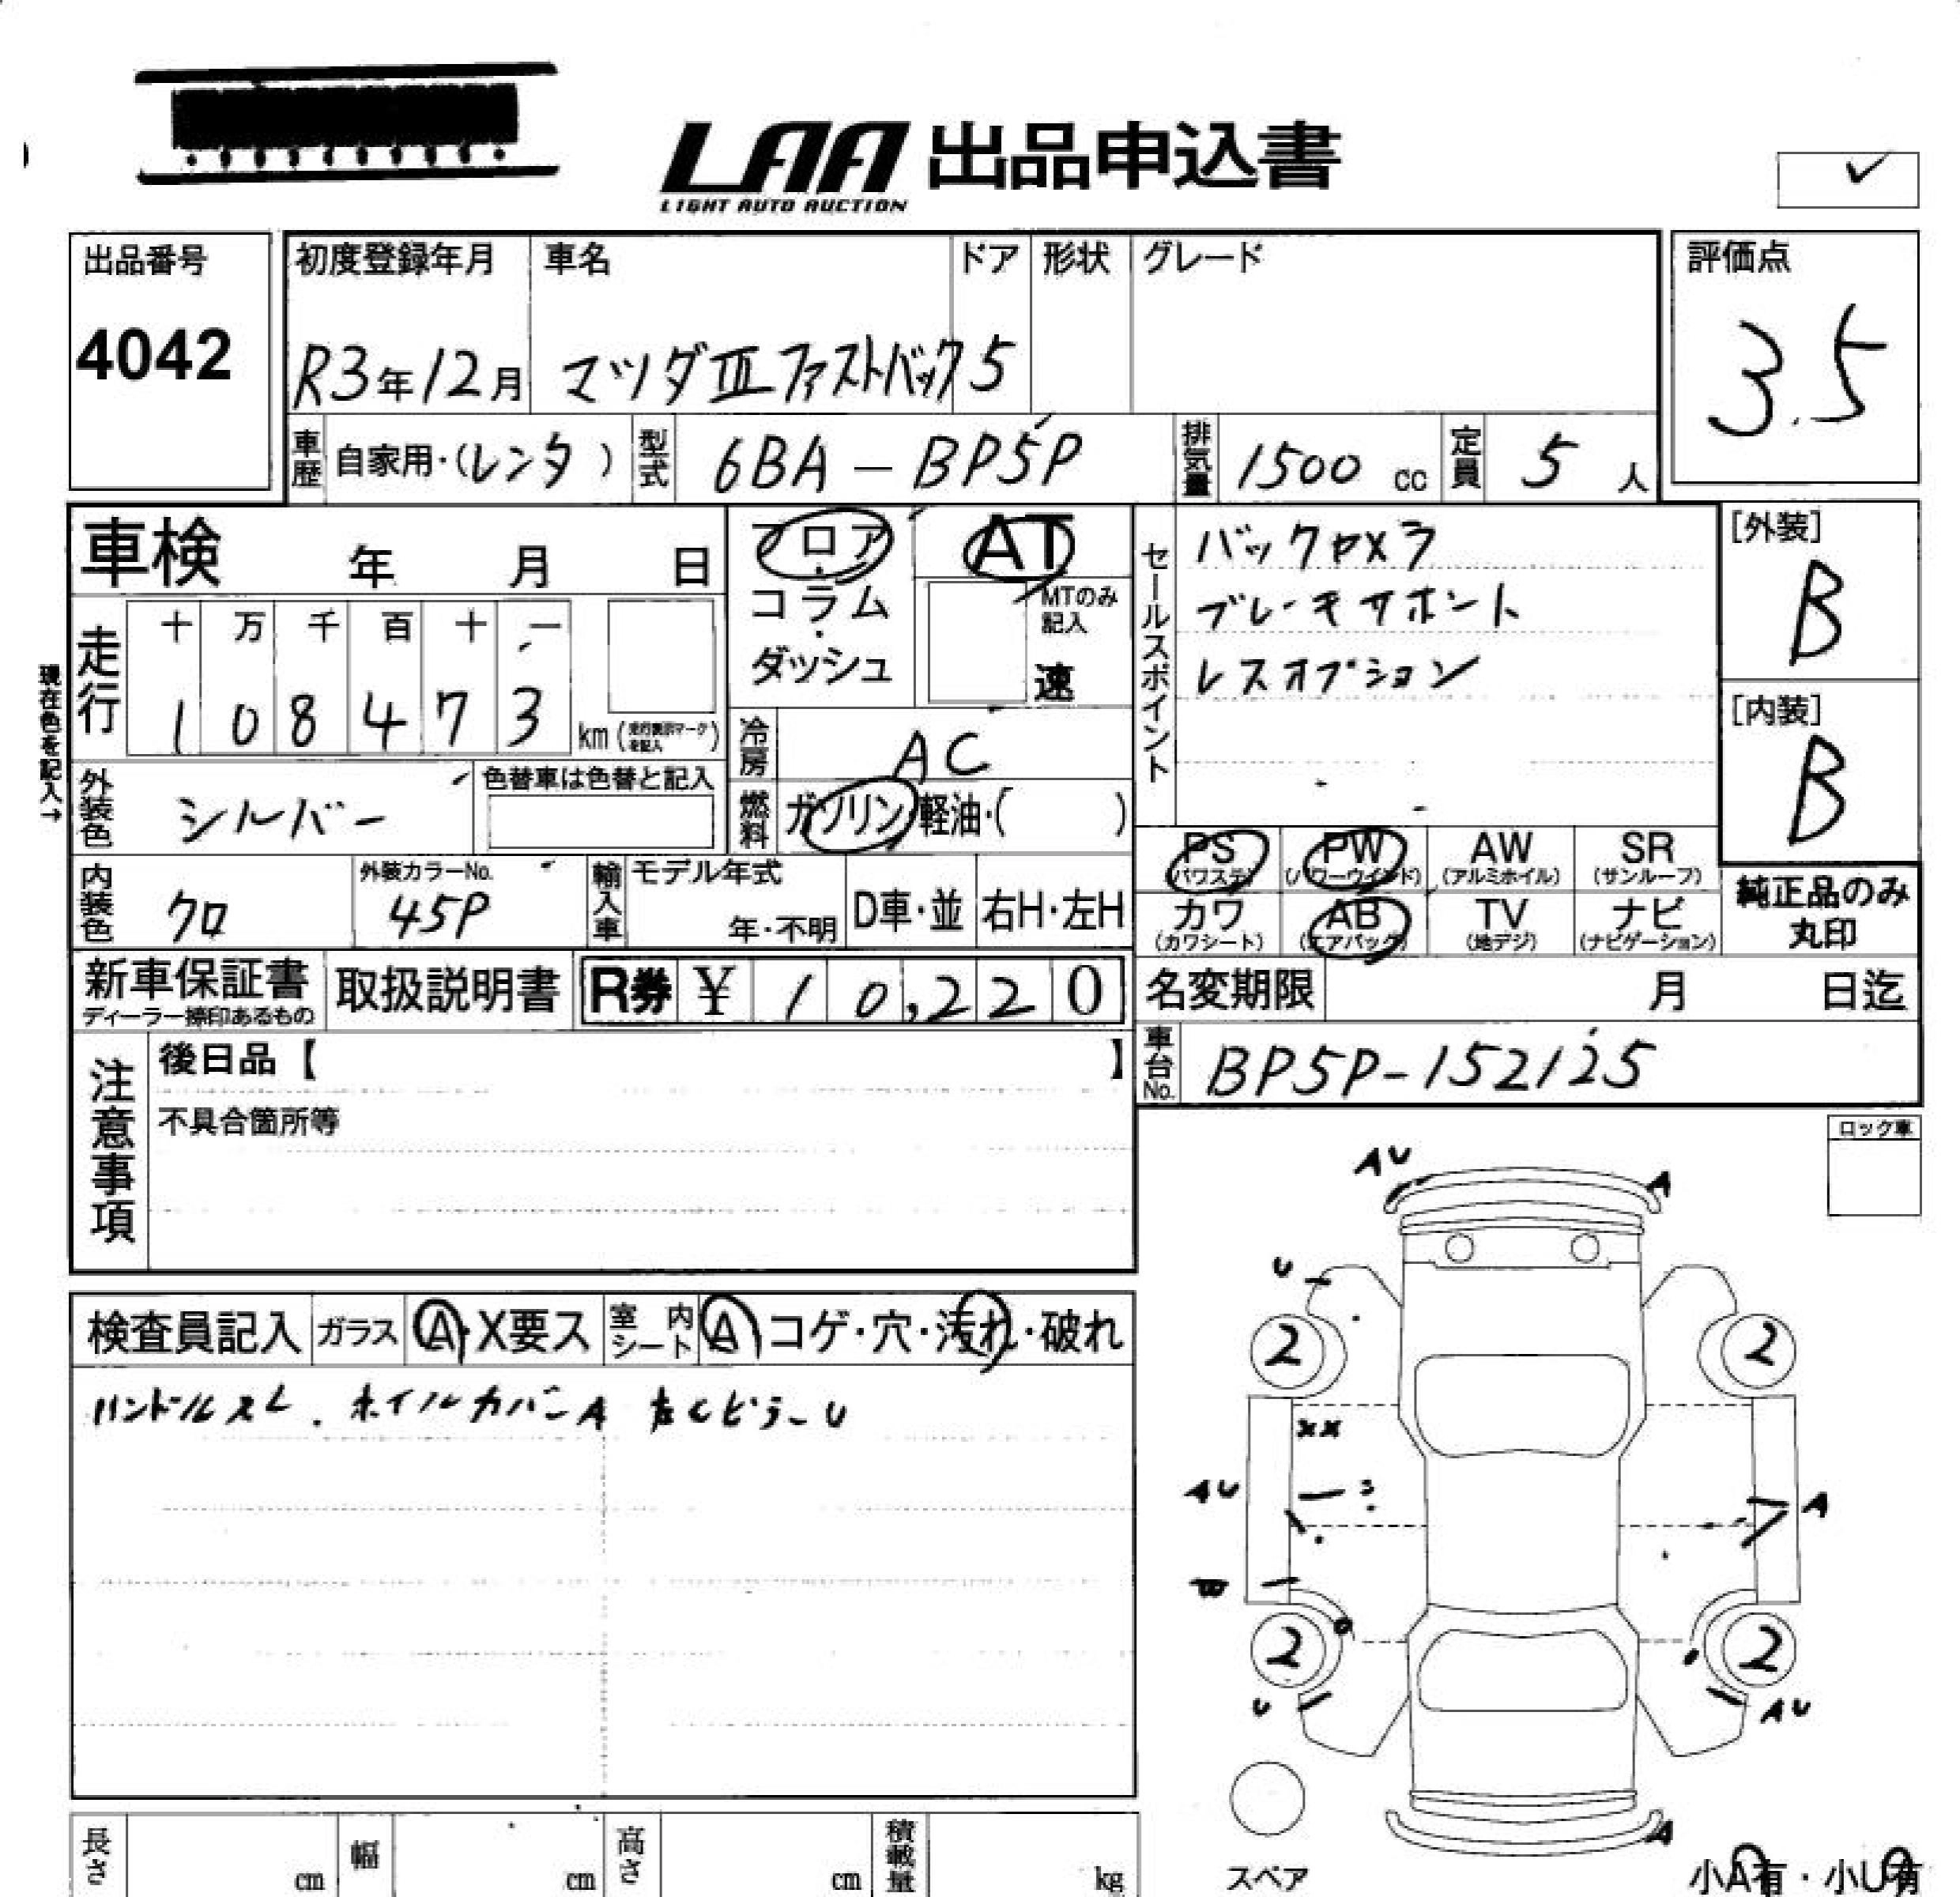 LAA 出品申込書
LIGHT AUTO AUCTION
出品番号
4042
初度登録年月
R3年12月
車名
マツダⅢファストバック
ドア
5
形状
グレード
評価点
3.5
車歴 自家用・(レンタ)
型式 6BA-BP5P
排気量 1500 cc
定員 5 人
車検 年 月 日
フロア・コラム・ダッシュ
AT
MTのみ記入
速
セールスポイント
バックカメラ
ブレーキサポート
レスオプション
[外装]
B
[内装]
B
現在色を記入→
走行
十 万 千 百 十 一
1 0 8 4 7 3
km (走行表示マークを記入)
冷房 AC
外装色 シルバー
色替車は色替と記入
燃料 ガソリン・軽油・( )
内装色 クロ
外装カラーNo.
45P
輸入車 モデル年式
年・不明
D車・並
右H・左H
PS (パワステ)
PW (パワーウインド)
AW (アルミホイル)
SR (サンルーフ)
カワ (カワシート)
AB (エアバッグ)
TV (地デジ)
ナビ (ナビゲーション)
純正品のみ
丸印
新車保証書
ディーラー捺印あるもの
取扱説明書
R券 ¥ 10,220
名変期限 月 日迄
車台No. BP5P-152125
注意事項
後日品【 】
不具合箇所等
ロック車
検査員記入
ガラス A・X要ス
室内シート A コゲ・穴・汚れ・破れ
ハンドルスレ . ホイルカバーA
AU
A
U
2
2
XX
AU
A
2
2
U
AU
A
スペア
小A有・小U有
長さ cm
幅 cm
高さ cm
積載量 kg